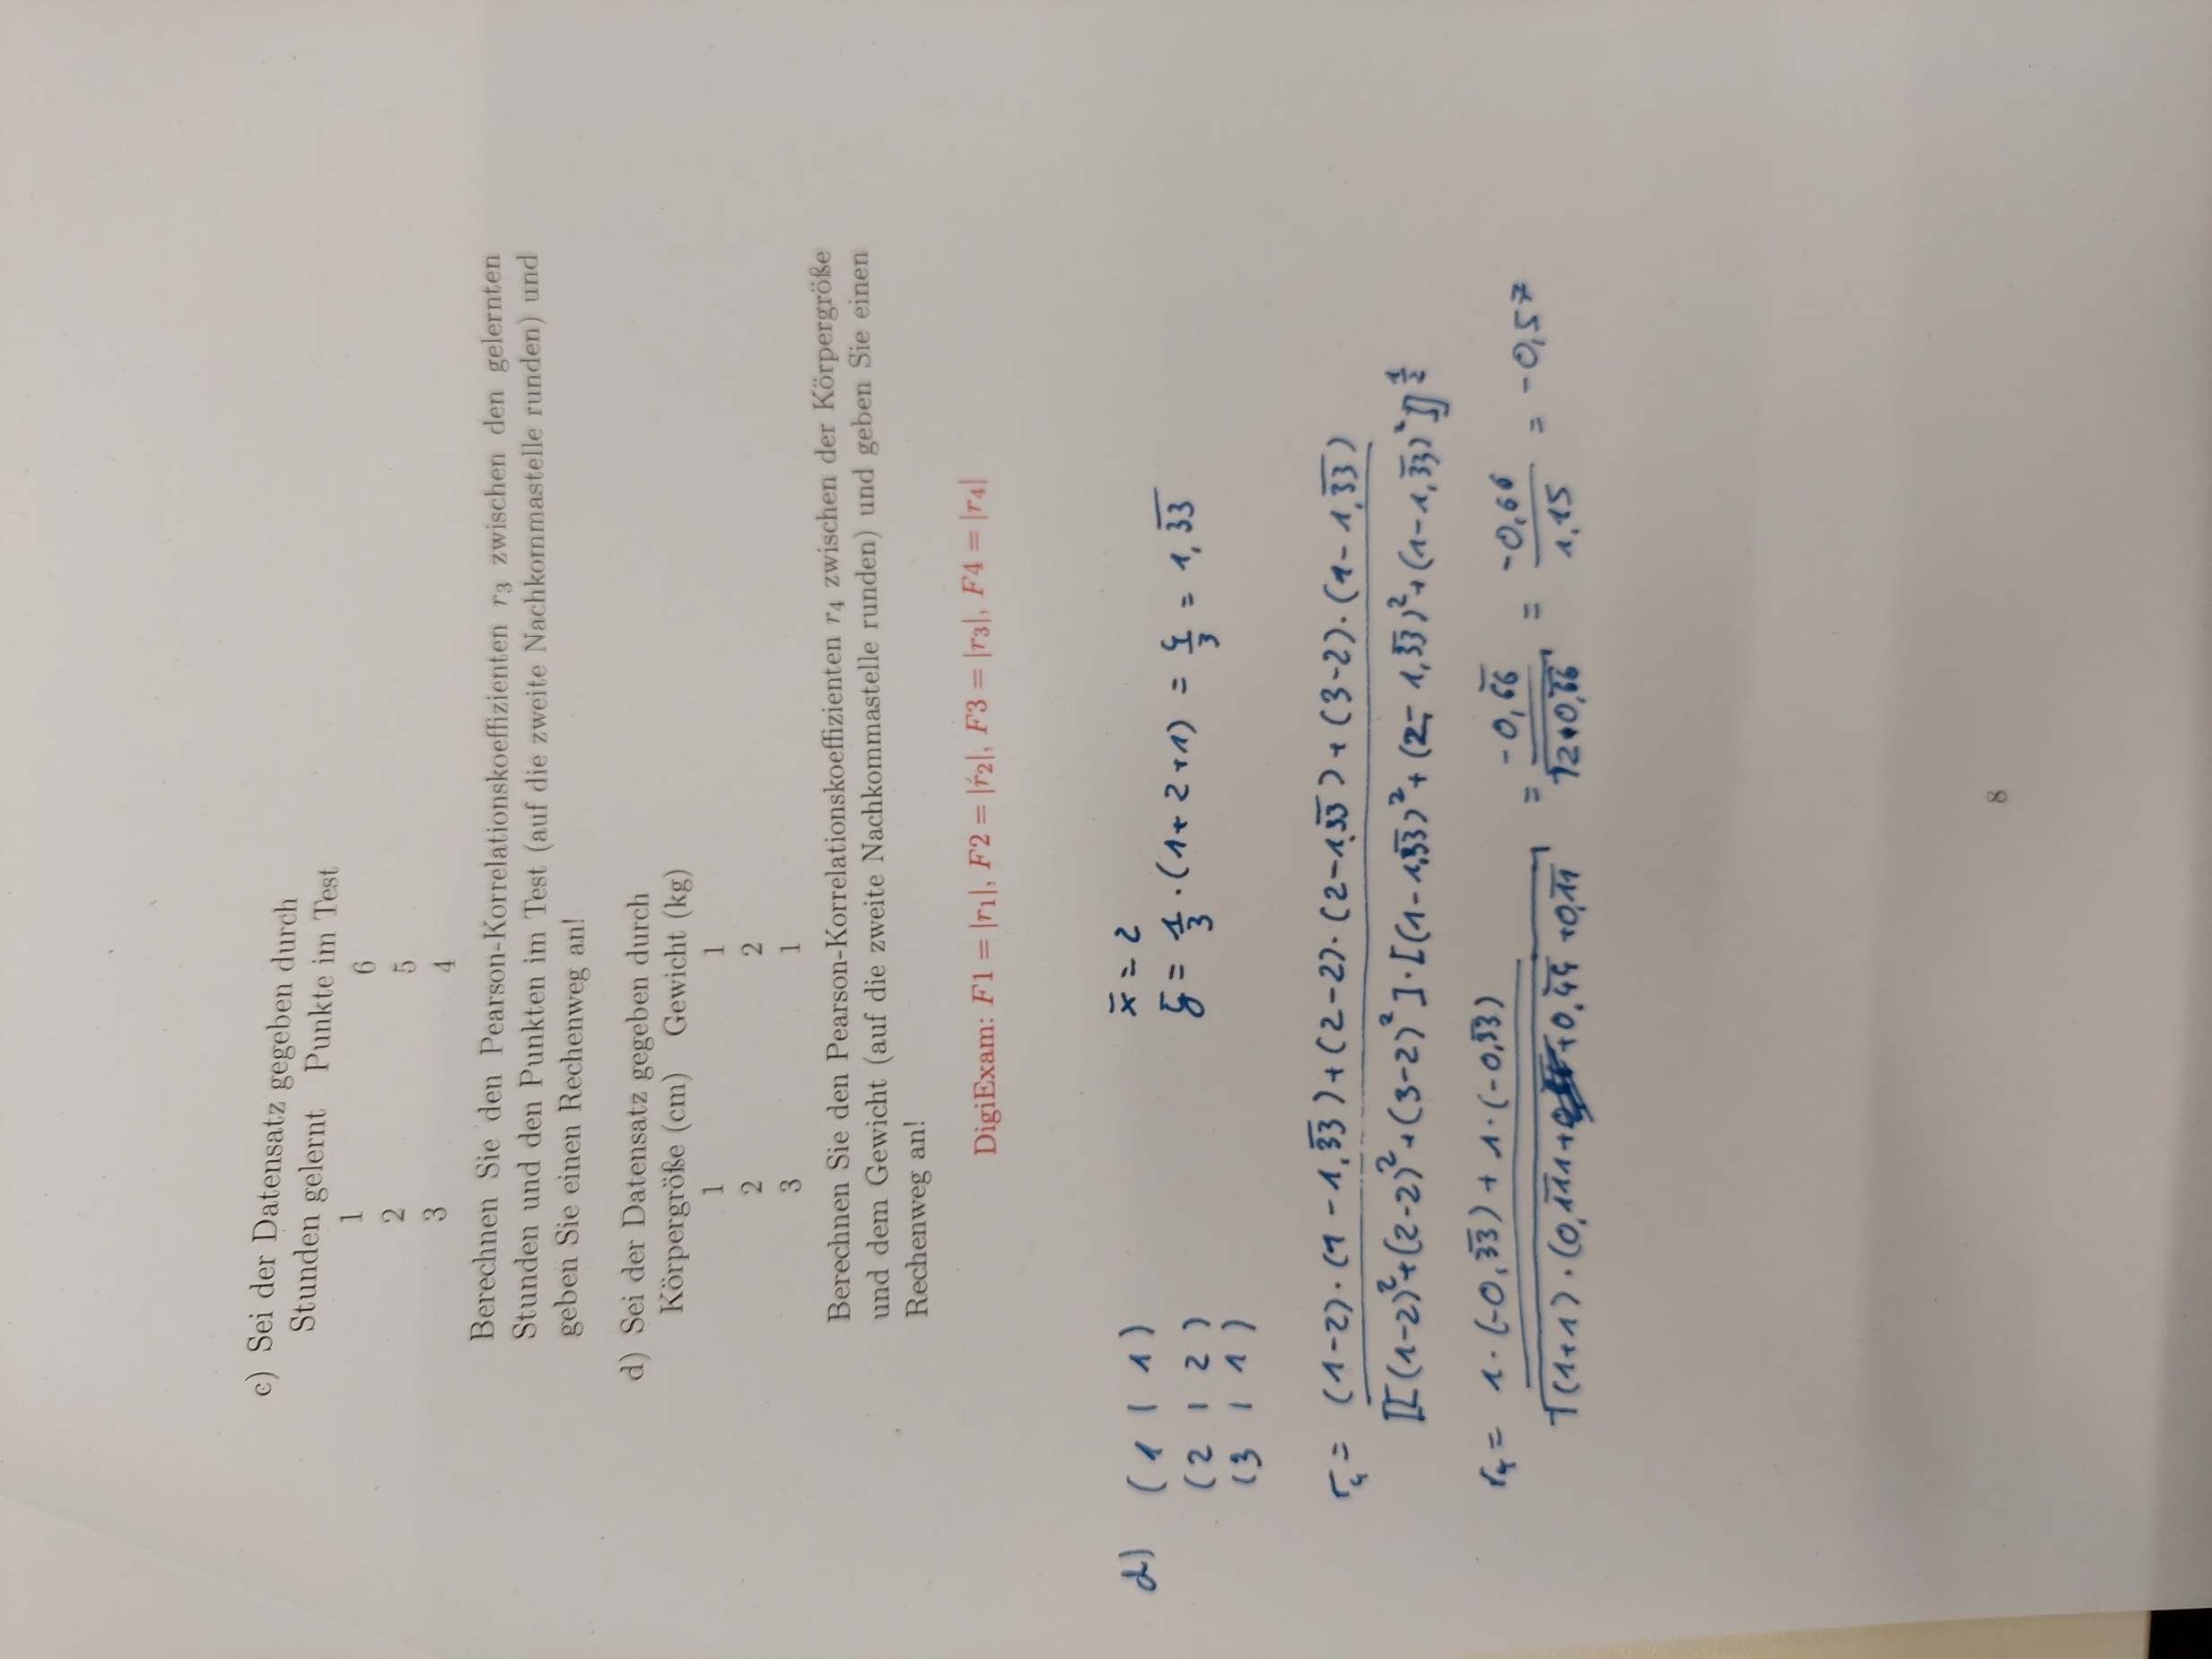 c) Sei der Datensatz gegeben durch
Stunden gelernt Punkte im Test
1 6
2 5
3 4
Berechnen Sie den Pearson-Korrelationskoeffizienten r₃ zwischen den gelernten
Stunden und den Punkten im Test (auf die zweite Nachkommastelle runden) und
geben Sie einen Rechenweg an!
d) Sei der Datensatz gegeben durch
Körpergröße (cm) Gewicht (kg)
1 1
2 2
3 1
Berechnen Sie den Pearson-Korrelationskoeffizienten r₄ zwischen der Körpergröße
und dem Gewicht (auf die zweite Nachkommastelle runden) und geben Sie einen
Rechenweg an!
DigiExam: F1 = |r₁|, F2 = |r₂|, F3 = |r₃|, F4 = |r₄|
d) (1 | 1) x̅ = 2
(2 | 2) y̅ = 1/3 · (1+2+1) = 4/3 = 1,3̅3̅
(3 | 1)
r₄ = (1-2)·(1-1,3̅3̅)+(2-2)·(2-1,3̅3̅)+(3-2)·(1-1,3̅3̅)
[[(1-2)²+(2-2)²+(3-2)²]·[(1-1,3̅3̅)²+(2-1,3̅3̅)²+(1-1,3̅3̅)²]]^1/2
r₄ = 1·(-0,3̅3̅)+1·(-0,3̅3̅) = -0,6̅6̅ = -0,66 = -0,57
√(1+1)·(0,1̅1̅1+0,4̅4̅+0,1̅1̅ √2·0,6̅6̅ 1,15
8